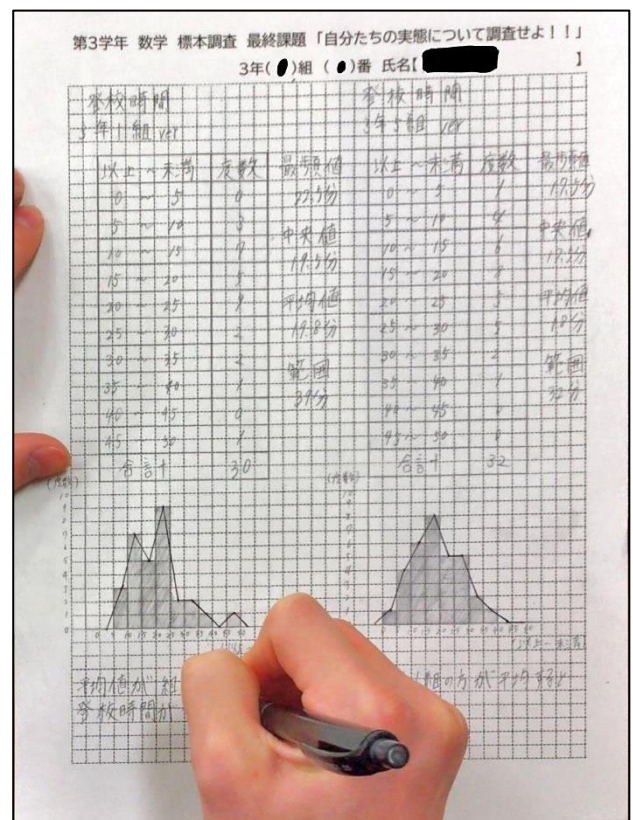 第3学年 数学 標本調査 最終課題「自分たちの実態について調査せよ！！」
3年( )組 ( )番 氏名【 】
登校時間
3年1組 ver
以上 ~ 未満 度数
0 ~ 5 0
5 ~ 10 3
10 ~ 15 7
15 ~ 20 5
20 ~ 25 9
25 ~ 30 2
30 ~ 35 2
35 ~ 40 1
40 ~ 45 0
45 ~ 50 1
合計 30
最頻値
22.5分
中央値
19.5分
平均値
19.8分
範囲
39分
登校時間
3年5組 ver
以上 ~ 未満 度数
0 ~ 5 1
5 ~ 10 4
10 ~ 15 6
15 ~ 20 8
20 ~ 25 5
25 ~ 30 5
30 ~ 35 2
35 ~ 40 1
40 ~ 45
45 ~ 50
合計 32
最頻値
17.5分
中央値
平均値
18分
範囲
32分
(度数)
(度数)
(以上~未満)
平均値が 組
登校時間が
組の方が平均すると